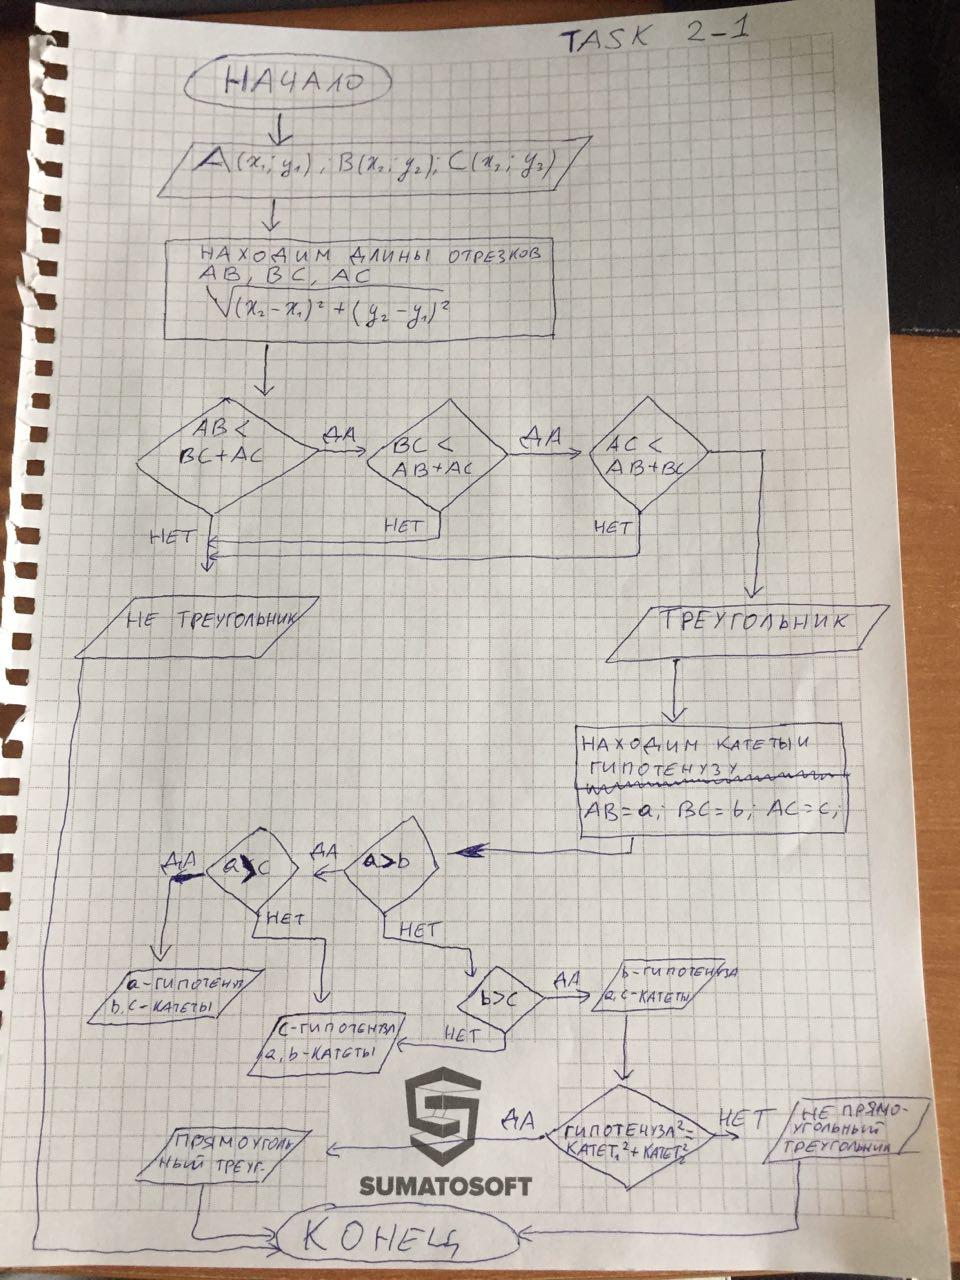 TASK 2-1
НАЧАЛО
A(x₁; y₁); B(x₂; y₂); C(x₂; y₃)
НАХОДИМ ДЛИНЫ ОТРЕЗКОВ
AB, BC, AC
√(x₂-x₁)²+(y₂-y₁)²
AB <
BC+AC
ДА
BC <
AB+AC
ДА
AC <
AB+BC
НЕТ
НЕТ
НЕТ
НЕ ТРЕУГОЛЬНИК
ТРЕУГОЛЬНИК
НАХОДИМ КАТЕТЫ И
ГИПОТЕНУЗУ
AB=a; BC=b; AC=c;
a>b
ДА
a>c
ДА
НЕТ
НЕТ
a-ГИПОТЕНУЗ
b,c-КАТЕТЫ
b>c
ДА
b-ГИПОТЕНУЗА
a,c-КАТЕТЫ
НЕТ
C-ГИПОТЕНУЗА
a,b-КАТЕТЫ
ГИПОТЕНУЗА²=
КАТЕТ₁²+КАТЕТ₂²
ДА
НЕТ
НЕ ПРЯМО-
УГОЛЬНЫЙ
ТРЕУГОЛЬНИК
ПРЯМОУГОЛЬ
НЫЙ ТРЕУГ.
SUMATOSOFT
КОНЕЦ